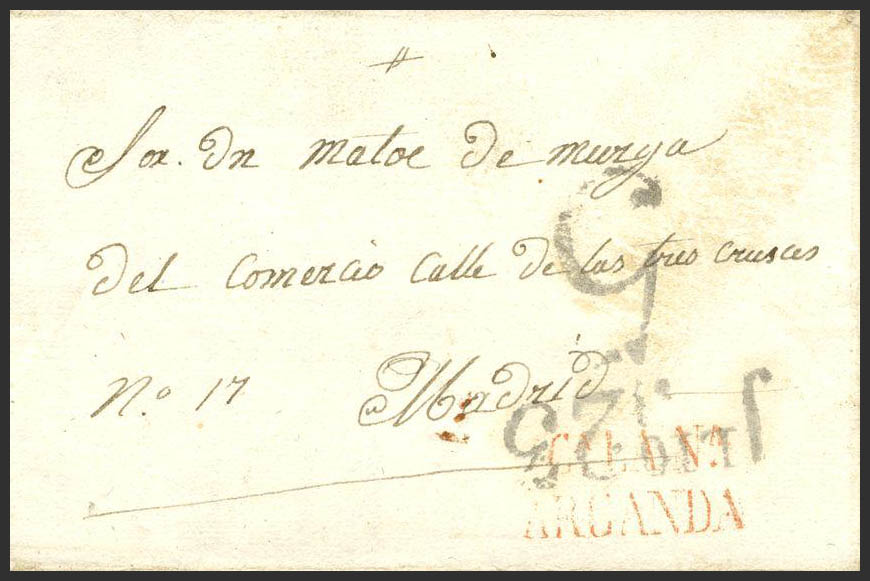 #
Sor. Dn Matoe de murga
del Comercio Calle de las tres cruses
No. 17 Madrid
CALANA
ARGANDA